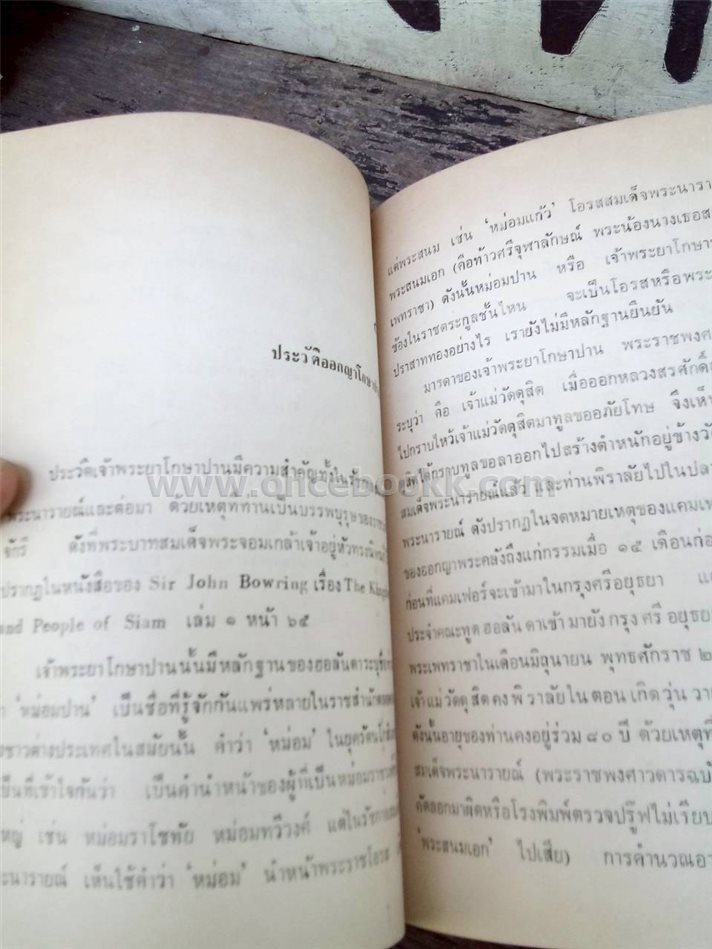 ประวัติออกญาโกษา
ประวัติเจ้าพระยาโกษาปานมีความสำคัญทั้งใน
พระนารายณ์และต่อมา ด้วยเหตุที่ท่านเป็นบรรพบุรุษของ
จักรี ดังที่พระบาทสมเด็จพระจอมเกล้าเจ้าอยู่หัวทรง
ปรากฏในหนังสือของ Sir John Bowring เรื่อง The
and People of Siam เล่ม ๑ หน้า ๖๕
เจ้าพระยาโกษาปานนั้นมีหลักฐานของฮอลันดาระบุ
'หม่อมปาน' เป็นชื่อที่รู้จักกันแพร่หลายในราชสำนัก
ชาวต่างประเทศในสมัยนั้น คำว่า 'หม่อม' ในยุครัตนโกสิน
เป็นที่เข้าใจกันว่า เป็นคำนำหน้าของผู้ที่เป็นหม่อมราชวงศ์
ใหญ่ เช่น หม่อมราโชทัย หม่อมทวีวงศ์ แต่ในรัช
พระนารายณ์ เห็นใช้คำว่า 'หม่อม' นำหน้าพระราชโอรส
แต่พระสนม เช่น 'หม่อมแก้ว' โอรสสมเด็จพระนารา
พระสนมเอก (คือท้าวศรีจุฬาลักษณ์ พระน้องนางเธอส
เพทราชา) ดังนั้นหม่อมปาน หรือ เจ้าพระยาโกษา
ข้องในราชตระกูลชั้นไหน จะเป็นโอรสหรือพระ
ปราสาททองอย่างไร เรายังไม่มีหลักฐานยืนยัน
มารดาของเจ้าพระยาโกษาปาน พระราชพงศ
ระบุว่า คือ เจ้าแม่วัดดุสิต เมื่อออกหลวงสรศักดิ์
ไปกราบไหว้เจ้าแม่วัดดุสิตมาทูลขออภัยโทษ จึงเห็น
งคได้กราบทูลขอลาออกไปสร้างตำหนักอยู่ข้างวั
สมเด็จพระนารายณ์แล้ว และท่านพิราลัยไปในปลา
พระนารายณ์ ดังปรากฏในจดหมายเหตุของแคมเ
ของออกญาพระคลังถึงแก่กรรมเมื่อ ๑๕ เดือนก่อ
ก่อนที่แคมเฟอร์จะเข้ามาในกรุงศรีอยุธยา แ
ประจำคณะทูต ฮอลันดาเข้ามายังกรุงศรีอยุธย
พระเพทราชาในเดือนมิถุนายน พุทธศักราช ๒
เจ้าแม่วัดดุสิตคงพิราลัยในตอน เกิดวุ่น วาย
ดังนั้นอายุของท่านคงอยู่ร่วม ๘๐ ปี ด้วยเหตุที่
สมเด็จพระนารายณ์ (พระราชพงศาวดารฉบั
คัดลอกมาผิดหรือโรงพิมพ์ตรวจปรู๊ฟไม่เรียบ
'พระสนมเอก' ไปเสีย) การคำนวณอา
www.oncebookk.com